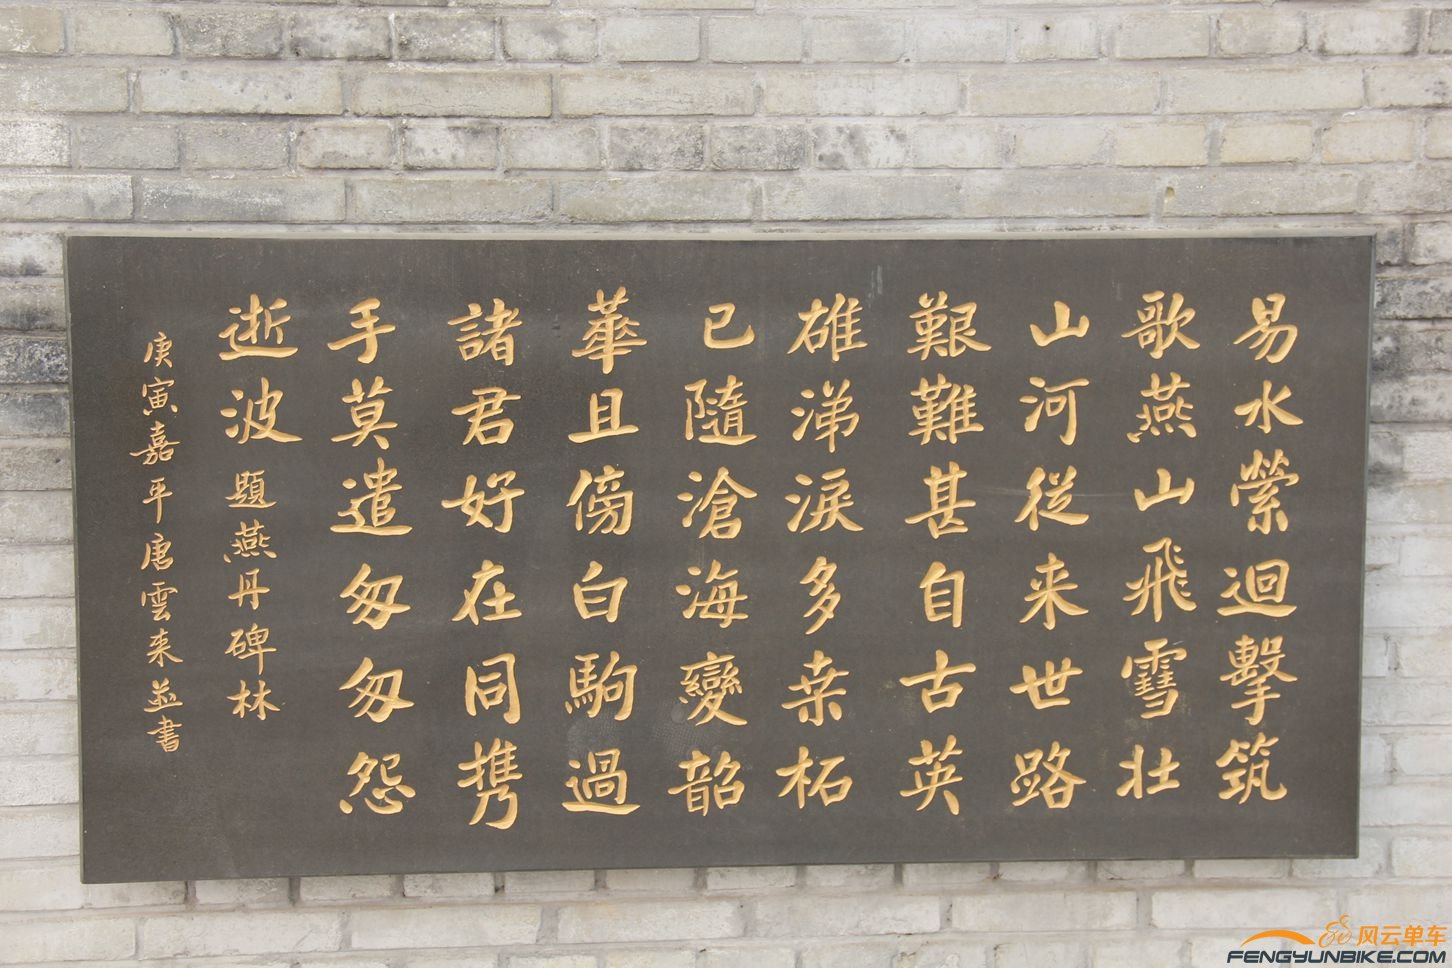 易水縈迴擊筑
歌燕山飛雪壯
山河從来世路
艱難甚自古英
雄涕淚多桑柘
已隨滄海變韶
華且傍白駒過
諸君好在同携
手莫遣匆匆怨
逝波 題燕丹碑林
庚寅嘉平唐雲来並書
风云单车
FENGYUNBIKE.COM